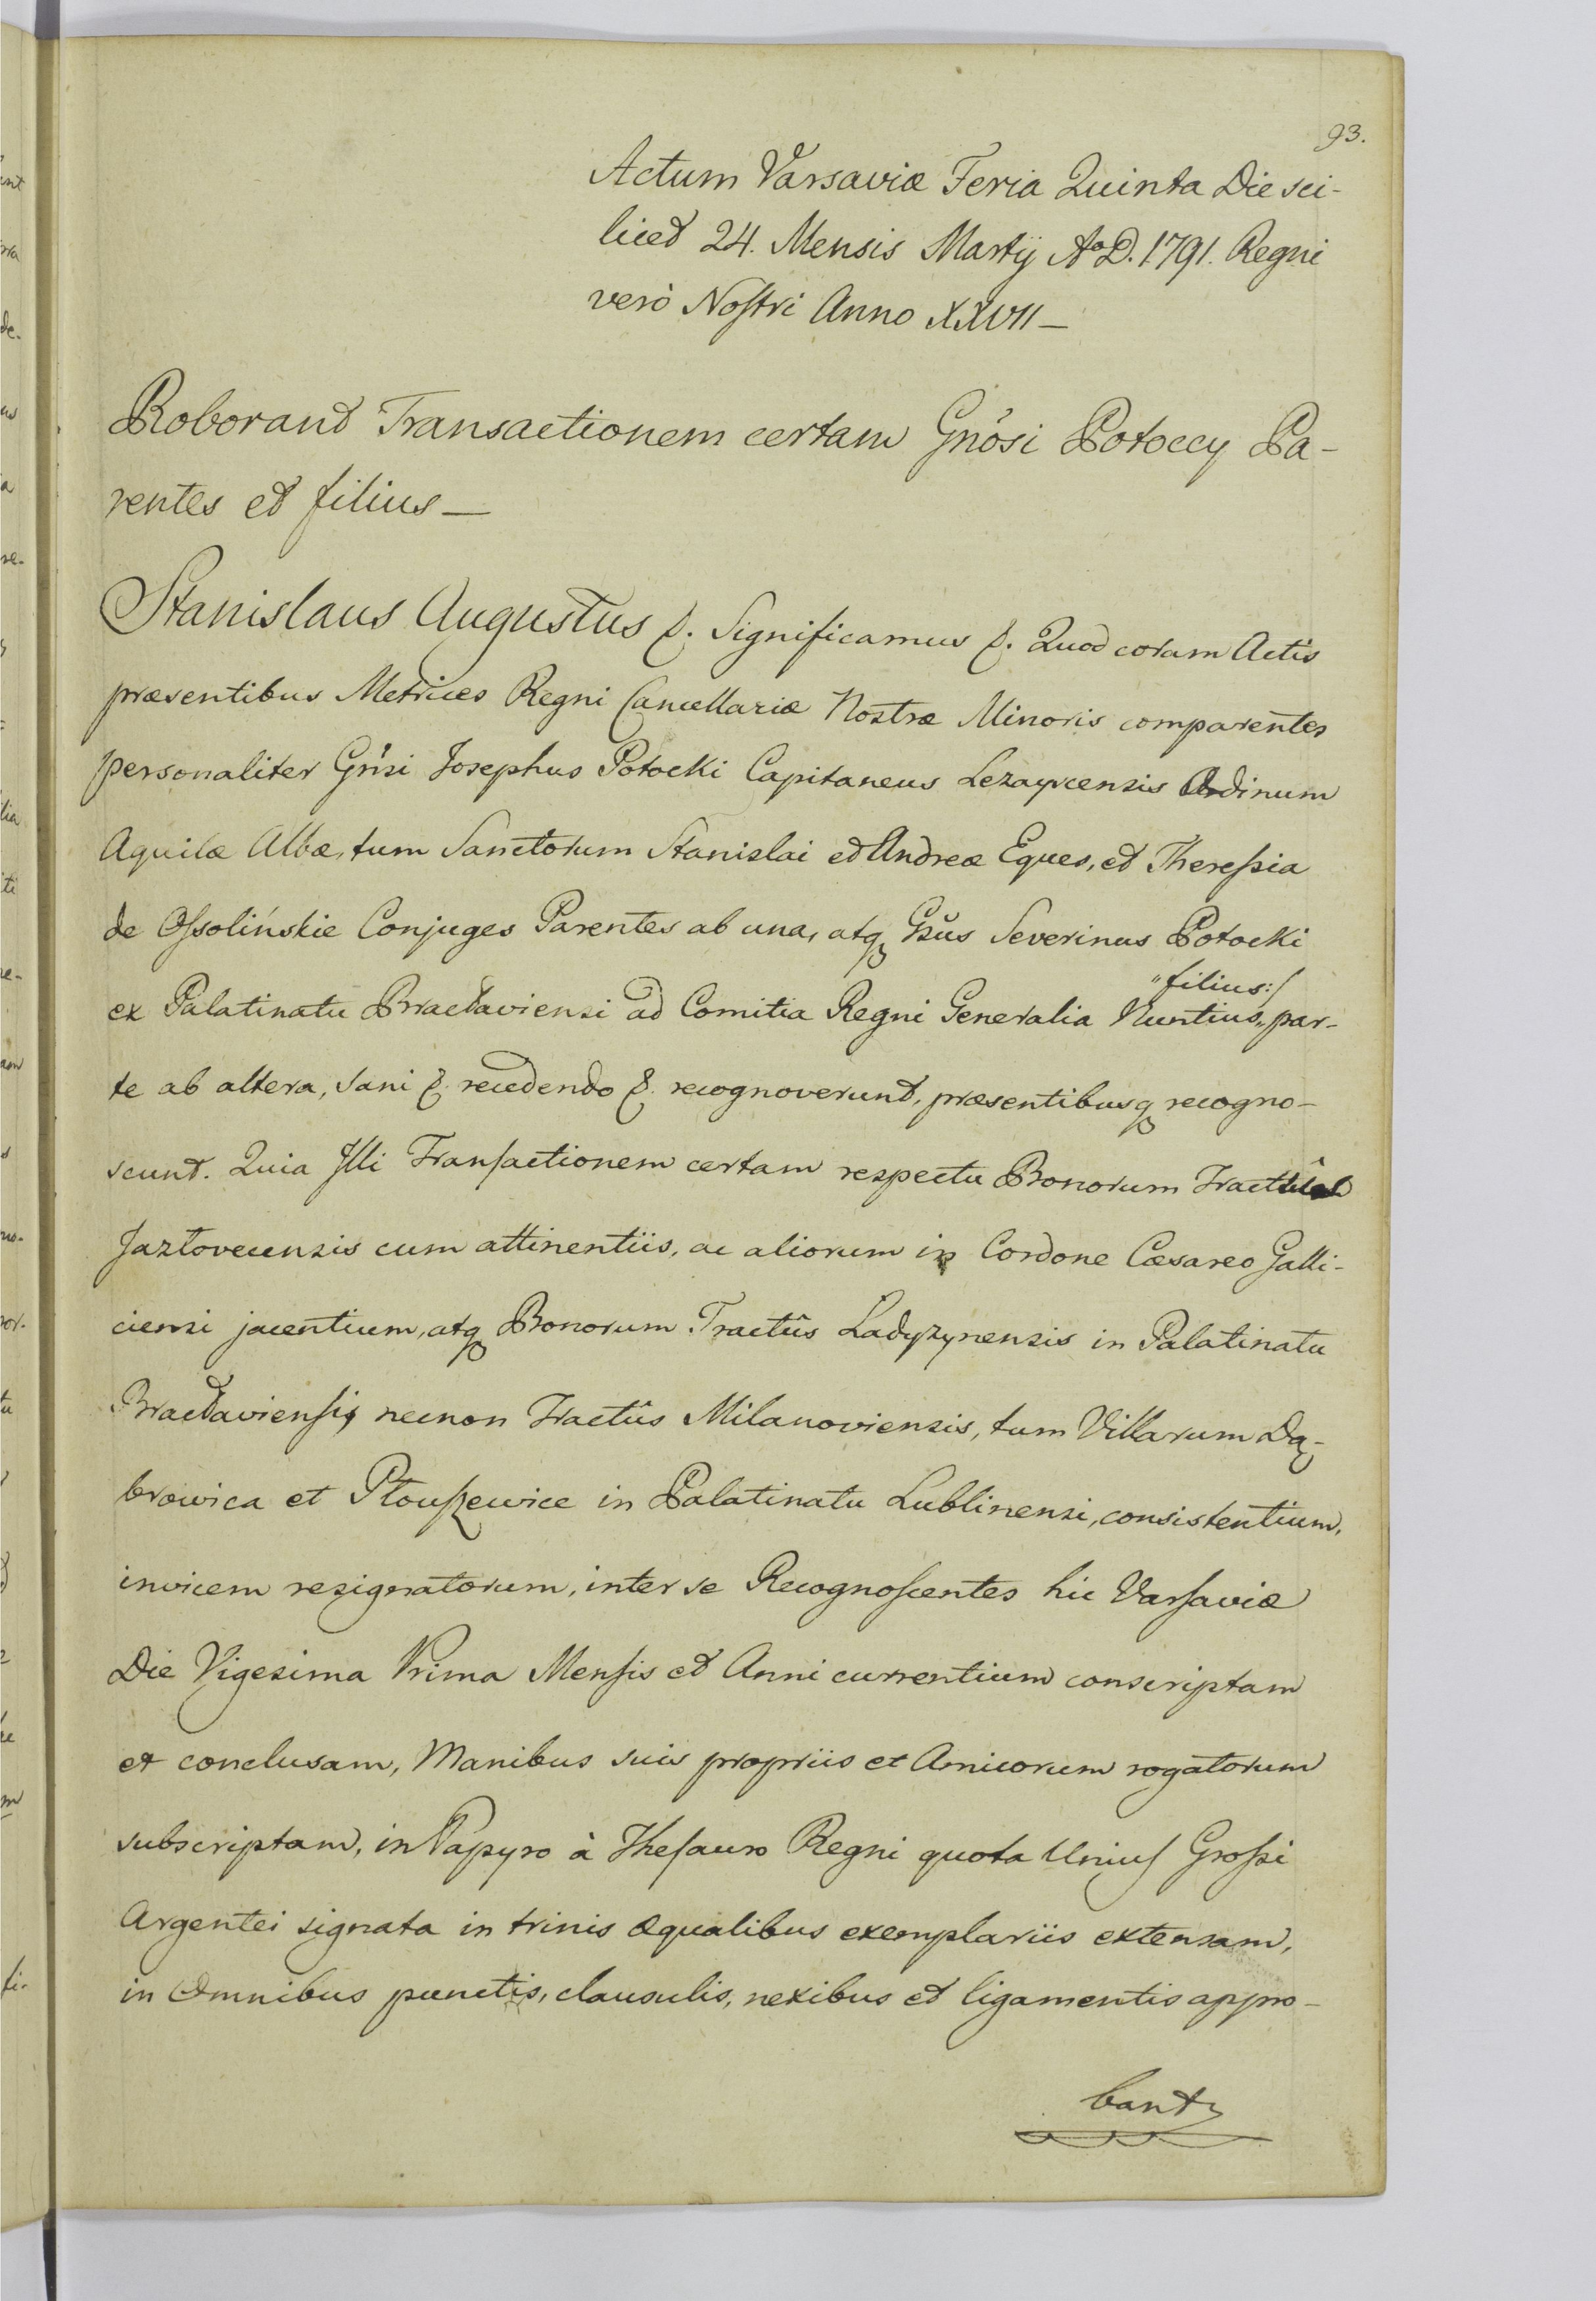 93.
Actum Varsaviæ Feria Quinta Die sci-
licet 24. Mensis Martij Aº D. 1791. Regni
verò Noſtri Anno XXVII—
Roborant Transactionem certam Gnŏsi Potoccy Pa-
rentes et filius—
Stanislaus Augustus &. Significamus &. Quod coram Actis
præsentibus Metrices Regni Cancellariæ Nostræ Minoris comparentes
personaliter Gnsi Josephus Potocki Capitaneus Lezaycensis Ordinum
Aquilæ Albæ, tum Sanctorum Stanislai et Andreæ Eques, et Thereſsia
de Oſsolińskie Conjuges Parentes ab una, atq Gsŭs Severinus Potocki
„filius:/
ex Palatinatu Bracłaviensi ad Comitia Regni Generalia Nuntius„ par-
te ab altera, sani &. recedendo &. recognoverunt, præsentibusq recogno-
scunt. Quia Illi Tranſactionem certam respectu Bonorum Tractûs
Jazłoveecensis cum attinentiis, ac aliorum in Cordone Cæsareo Galli-
ciensi jacentium, atq Bonorum Tractûs Ladyzynensis in Palatinatu
Bracłavienſi, necnon Tractûs Milanoviensis, tum Villarum Dą-
browica et Płouſzewice in Palatinatu Lublinensi, consistentium,
invicem resignatorum, inter se Recognoſcentes hic Varſaviæ
Die Vigesima Prima Menſis et Anni currentium conscriptam
et conclusam, Manibus suis propriis et Amicorum rogatorum
subscriptam, in Papyro à Theſauro Regni quota Uniuſ Groſsi
Argentei signata in trinis æqualibus exemplariis extensam,
in Omnibus punctis, clausulis, nexibus et ligamentis appro-
bant